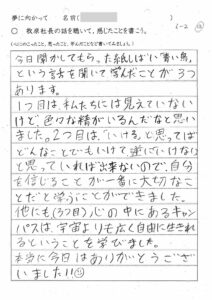 夢に向かって 名前( )
1-2
◎ 我原社長の話を聴いて、感じたことを書こう。
(心にのこったこと、思ったこと、学んだことなど書いてみましょう。)
今日聞かしてもらった紙しばい「青い鳥」
という言葉を聞いて学んだことが3つ
あります。
1つ目は、私たちには見えていない
けど、色々な精がいるんだなと思い
ました。2つ目は、「いける」と思ってば
どんなことでもいけて逆にいけない
と思っていれば出来ないので、自分
を信じることが一番に大切なこ
とだと学ぶことができました。
他にも(3つ目)心の中にあるキャン
パスは、宇宙よりも広く自由に生きれ
るということを学びました。
本当に今日はありがとうござ
いました!!